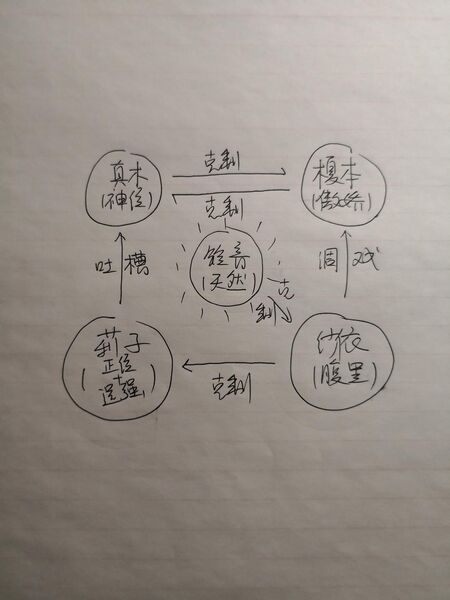 克制
真木
(神经)
榎本
(傲娇)
克制
铃音
(天然)
吐槽
调戏
克
制
莉子
(正经
逞强)
纱衣
(腹黑)
克制